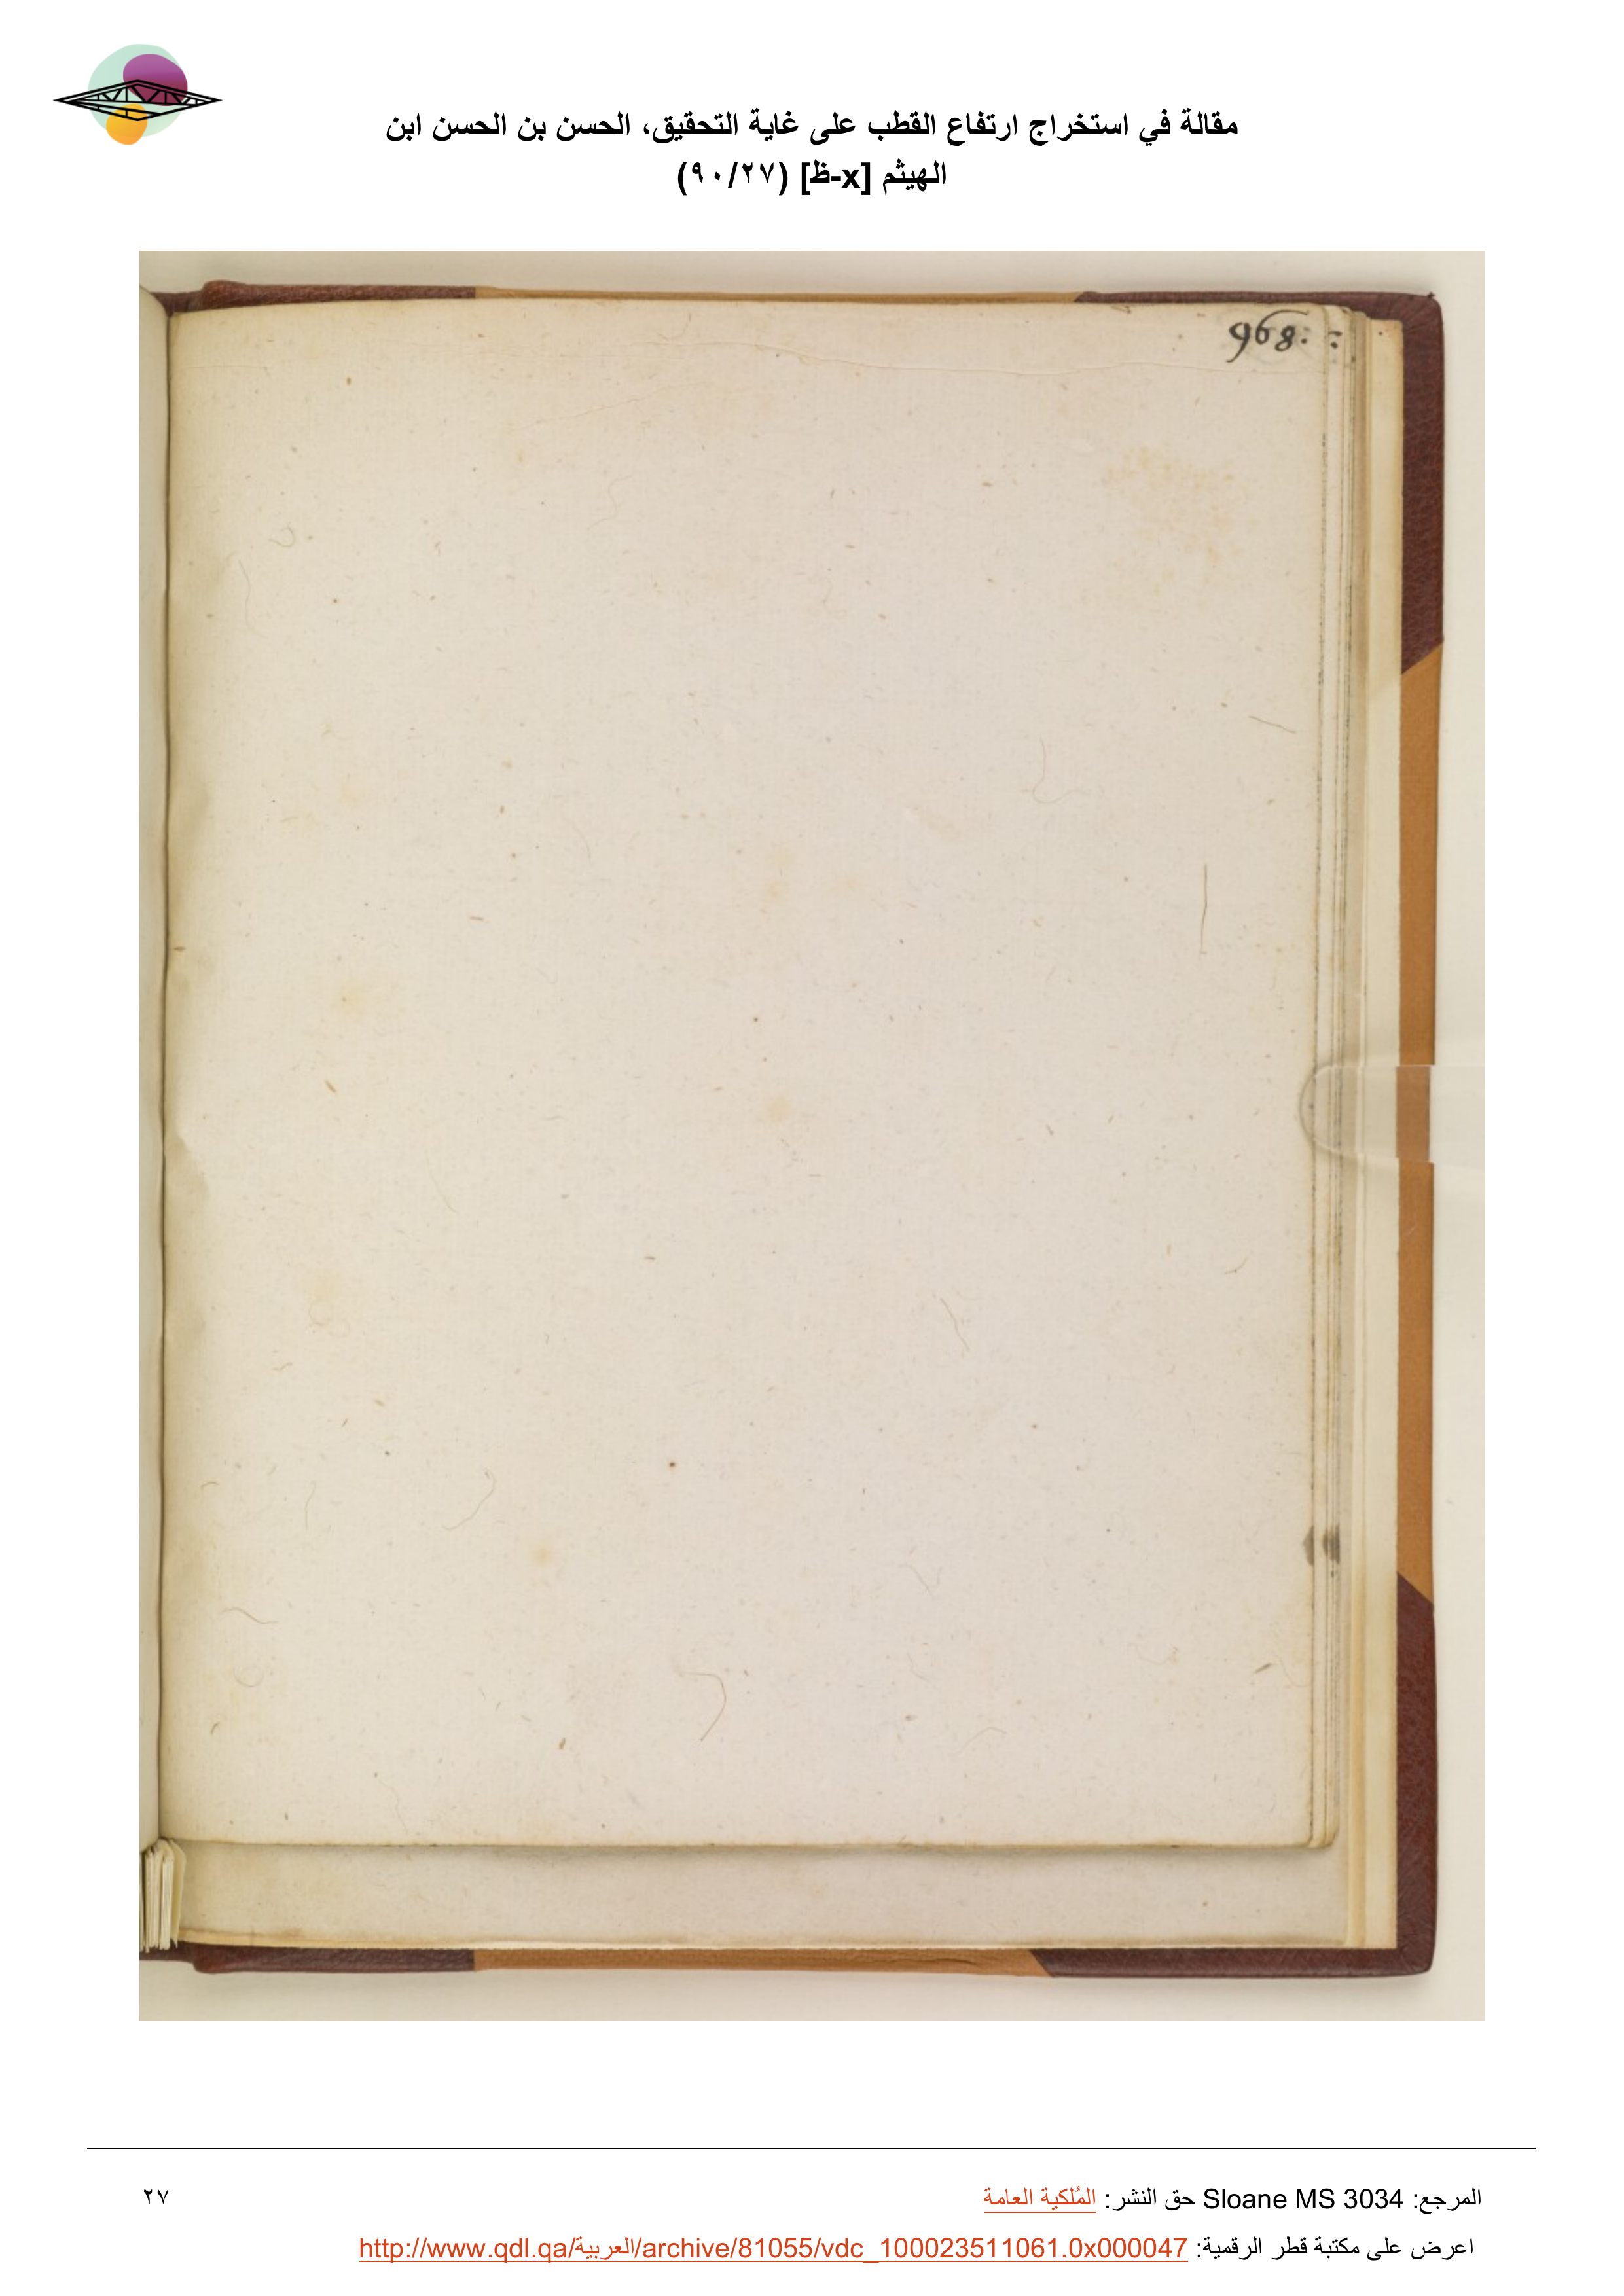 مقالة في استخراج ارتفاع القطب على غاية التحقيق، الحسن بن الحسن ابن
الهيثم [x-ظ] (٩٠/٢٧)
968:
المرجع: Sloane MS 3034 حق النشر: المُلكية العامة
٢٧
اعرض على مكتبة قطر الرقمية: http://www.qdl.qa/العربية/archive/81055/vdc_100023511061.0x000047